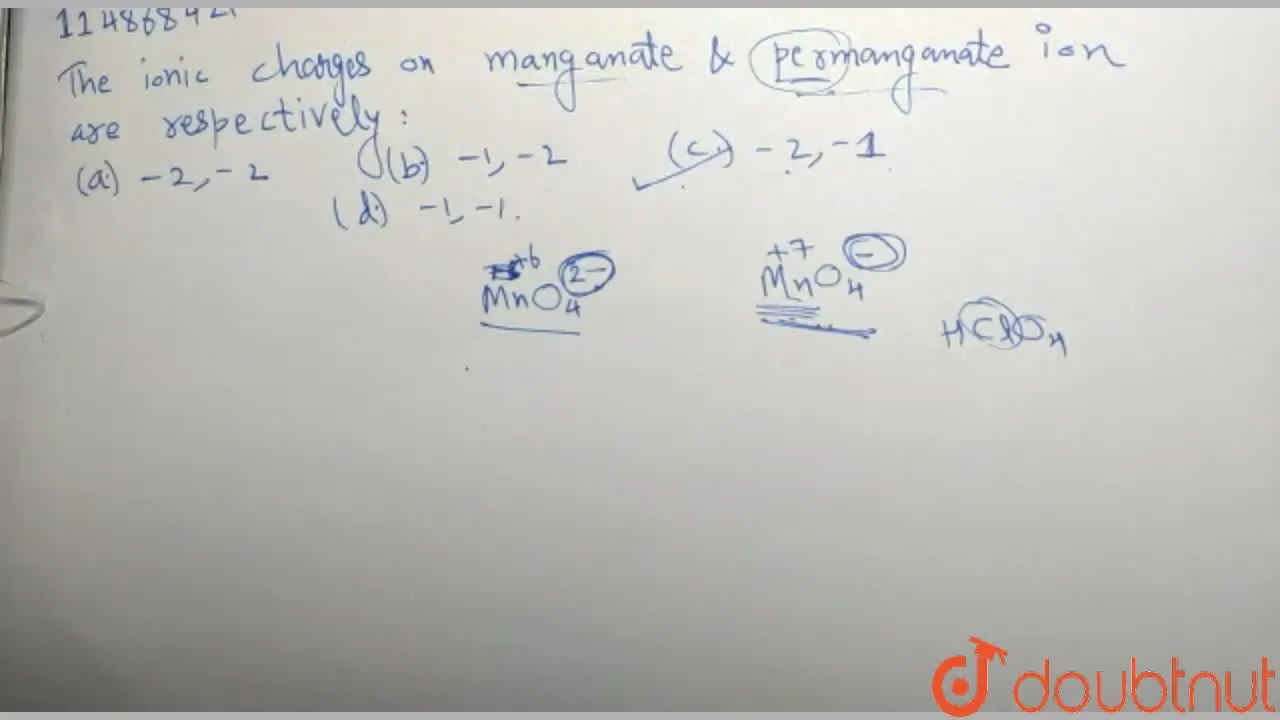 The ionic charges on manganate & permanganate ion
are respectively:
(a.) -2, -2 (b.) -1, -2 (c.) -2, -1
(d.) -1, -1.
+6 +7
MnO4 2- MnO4 -
HClO4
doubtnut